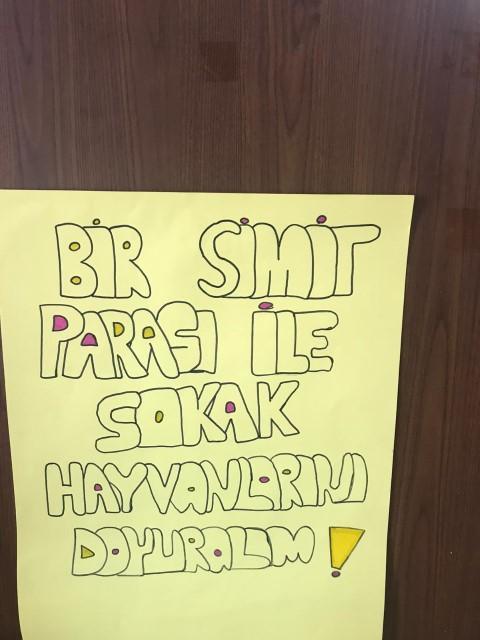 BİR SİMİT
PARASI İLE
SOKAK
HAYVANLARINI
DOYURALIM!